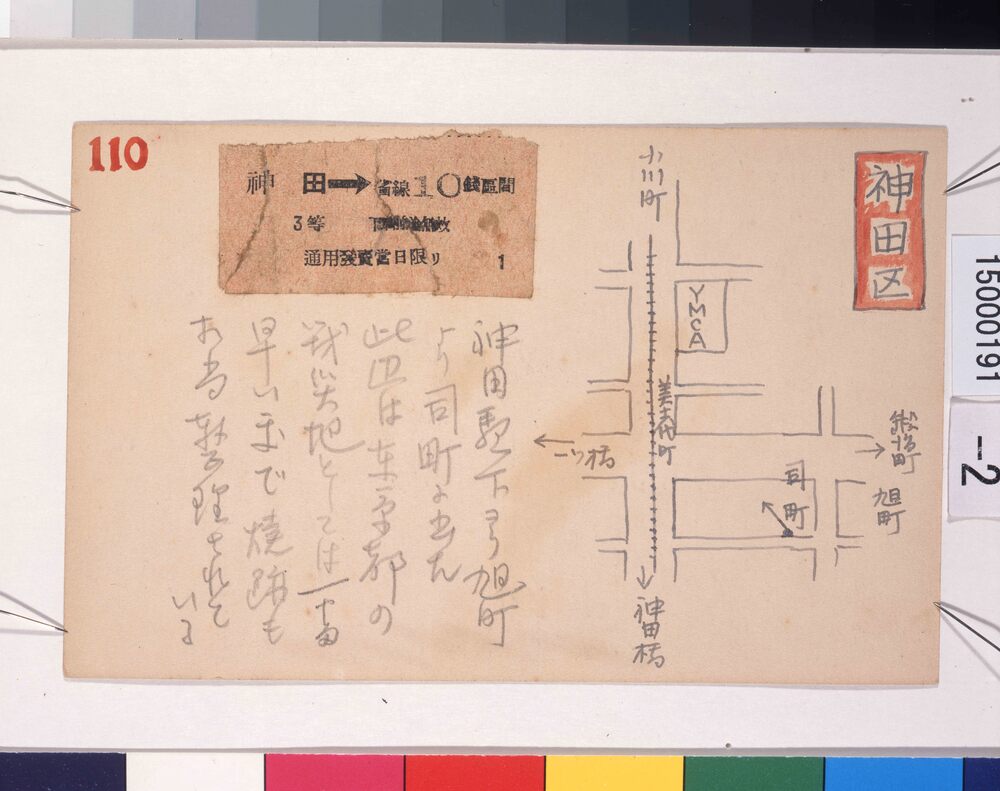 110
神田→省線10銭區間
3等
通用発賣當日限り 1
神田区
小川町
YMCA
美土代町
一ツ橋
司町
旭町
神田橋
神田駅下車 旭町
より司町に出た
此辺は東京都の
戦災地としては一番
早いまで焼跡も
相当整理されて
いる
15000191
-2